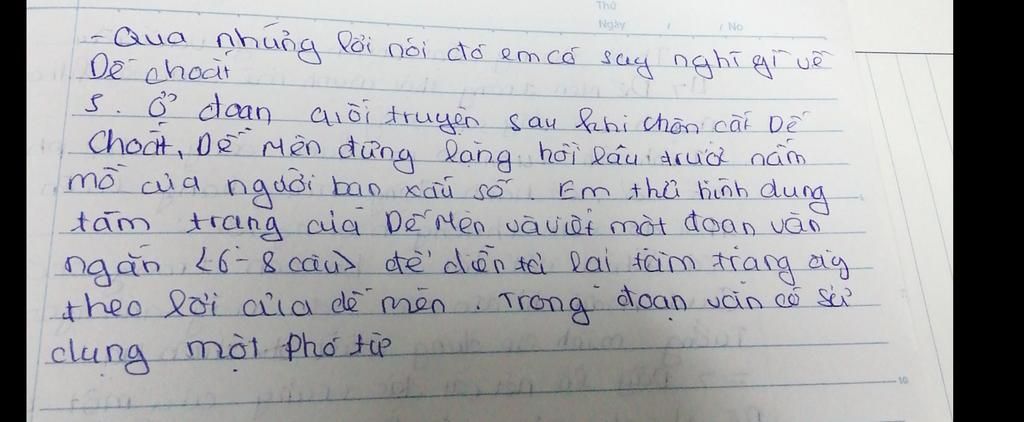 Thứ
Ngày / / No
- Qua những lời nói đó em có suy nghĩ gì về
Dế choắt
5. Ở đoạn cuối truyện sau khi chôn cất Dế
Choắt, Dế Mèn đứng lặng hồi lâu trước nấm
mồ của người bạn xấu số. Em thử hình dung
tâm trạng của Dế Mèn và viết một đoạn văn
ngắn <6-8 câu> để diễn tả lại tâm trạng ấy
theo lời của dế mèn. Trong đoạn văn có sử
dụng một phó từ
10